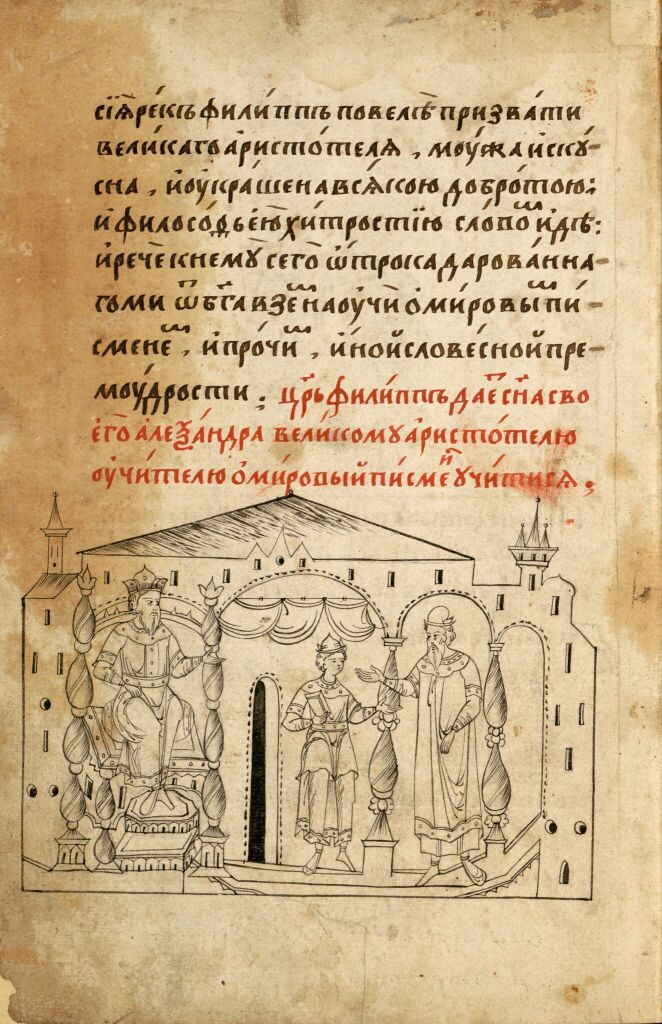 сїѧ̑ ре́къ фили́ппъ повелѣ̀ призва́ти
вели́каго аристо́телѧ , моу́жа и҆скꙋ-
сна , и҆ оу҆кра́шена всѧ́кою добро́тою:
и҆ филосо́фьею хи́тростїю сло́воⷨ и҆ дѣⷧ:
и҆ рече́ к немꙋ̀ сего ѿтрока дарова́нна-
го ми ѿ бг҃а взеⷨ наоучи̑ о҆ми́ровыⷯ пи-
сменеⷨ , и҆ про́чиⷨ , и҆но́й слове́сной пре-
моу́дрости . цр҃ь фили́ппъ дае҆ⷮ сн҃а сво
его а҆леѯа́ндра вели́комꙋ аристо́телю
оу҆чи́телю о҆ми́ровый писмеⷩи҆ ᲂу҆чи́тисѧ .